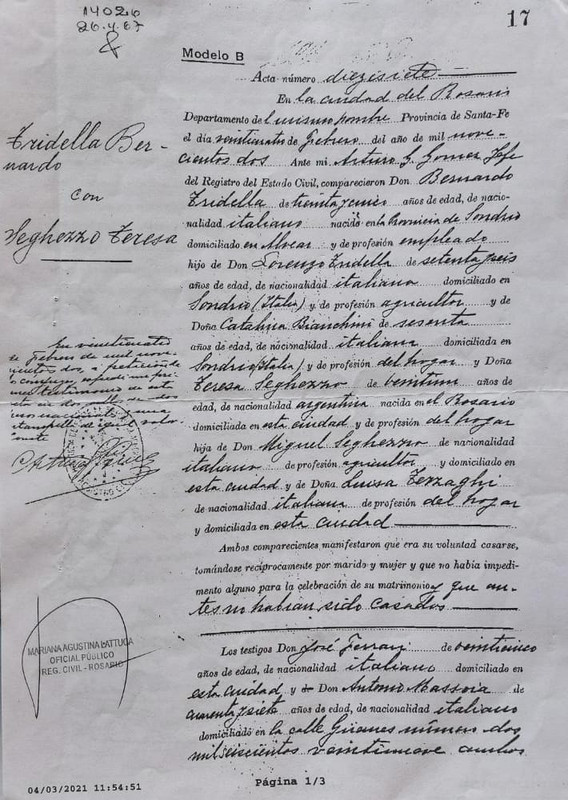 14026
26.4.67
17
Modelo B
Acta número diezisiete
En la ciudad del Rosario
Departamento del mismo nombre Provincia de Santa-Fe
el día veinticuatro de Febrero del año de mil nove-
cientos dos Ante mi, Arturo G. Gomez Jefe
del Registro del Estado Civil, comparecieron Don Bernardo
Tridella de treinta y cinco años de edad, de nacio-
nalidad italiano nacido en la Provincia de Sondrio
domiciliado en y de profesión empleado
hijo de Don Lorenzo Tridella de setenta y seis
años de edad, de nacionalidad italiana domiciliado en
Sondrio (Italia) y de profesión agricultor y de
Doña Catalina Bianchini de sesenta
años de edad, de nacionalidad italiana domiciliada en
Sondrio (Italia) y de profesión del hogar y Doña
Teresa Seghezzo de veintiun años de
edad, de nacionalidad argentina nacida en el Rosario
domiciliada en esta ciudad y de profesión del hogar
hija de Don Miguel Seghezzo de nacionalidad
italiano de profesión agricultor y domiciliado en
esta ciudad y de Doña Luisa Terzaghi
de nacionalidad italiana de profesión del hogar
y domiciliada en esta ciudad
Ambos comparecientes manifestaron que era su voluntad casarse,
tomándose recíprocamente por marido y mujer y que no había impedi-
mento alguno para la celebración de su matrimonio y que an-
tes no habian sido casados
Los testigos Don José Ferrari de veinticinco
años de edad, de nacionalidad italiano domiciliado en
esta ciudad y Don Antonio Massoia de
cuarenta y siete años de edad, de nacionalidad italiano
domiciliado en la calle Güemes número dos
mil seiscientos veintinueve ambos
Tridella Ber-
nardo
con
Seghezzo Teresa
En veinticuatro
de Febrero de mil nove-
cientos dos, a petición de
MARIANA AGUSTINA BATTUCA
OFICIAL PÚBLICO
REG. CIVIL - ROSARIO
04/03/2021 11:54:51
Página 1/3